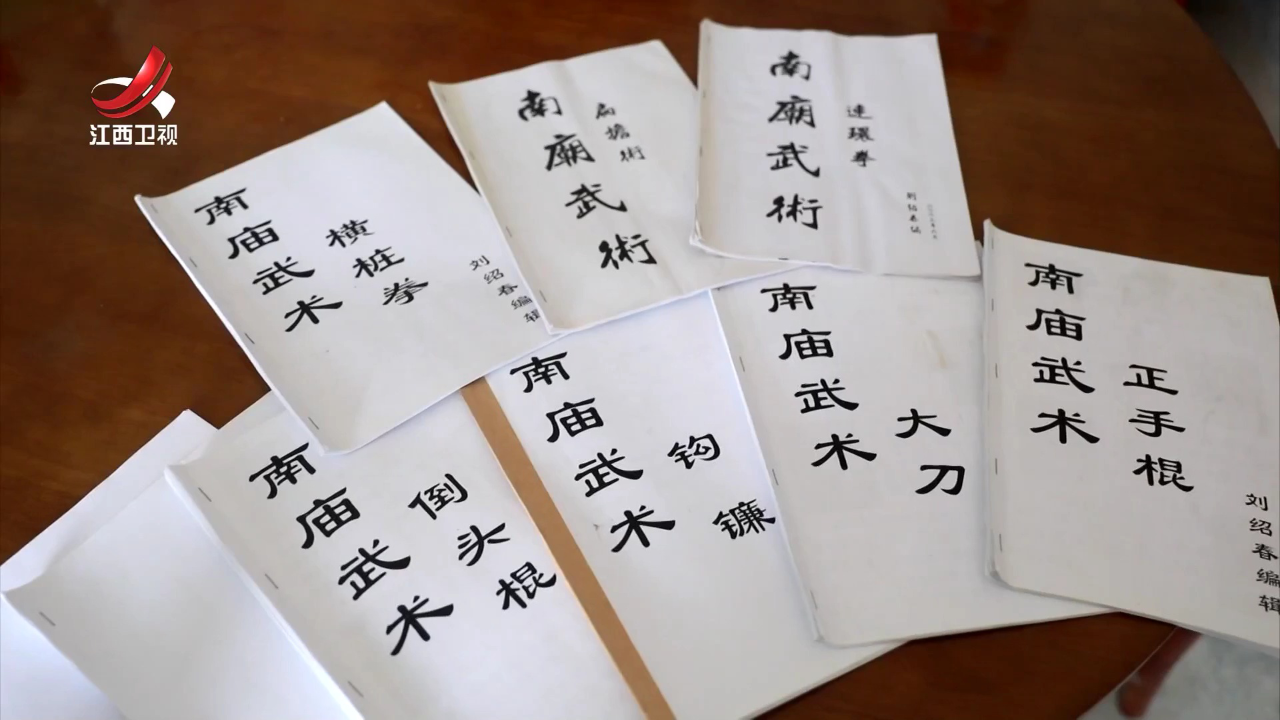 江西卫视
南庙武术
横桩拳
刘绍春编辑
南廟武術
扁擔術
南廟武術
連環拳
刘绍春编
南庙武术
倒头棍
南庙武术
钩镰
南庙武术
大刀
南庙武术
正手棍
刘绍春编辑